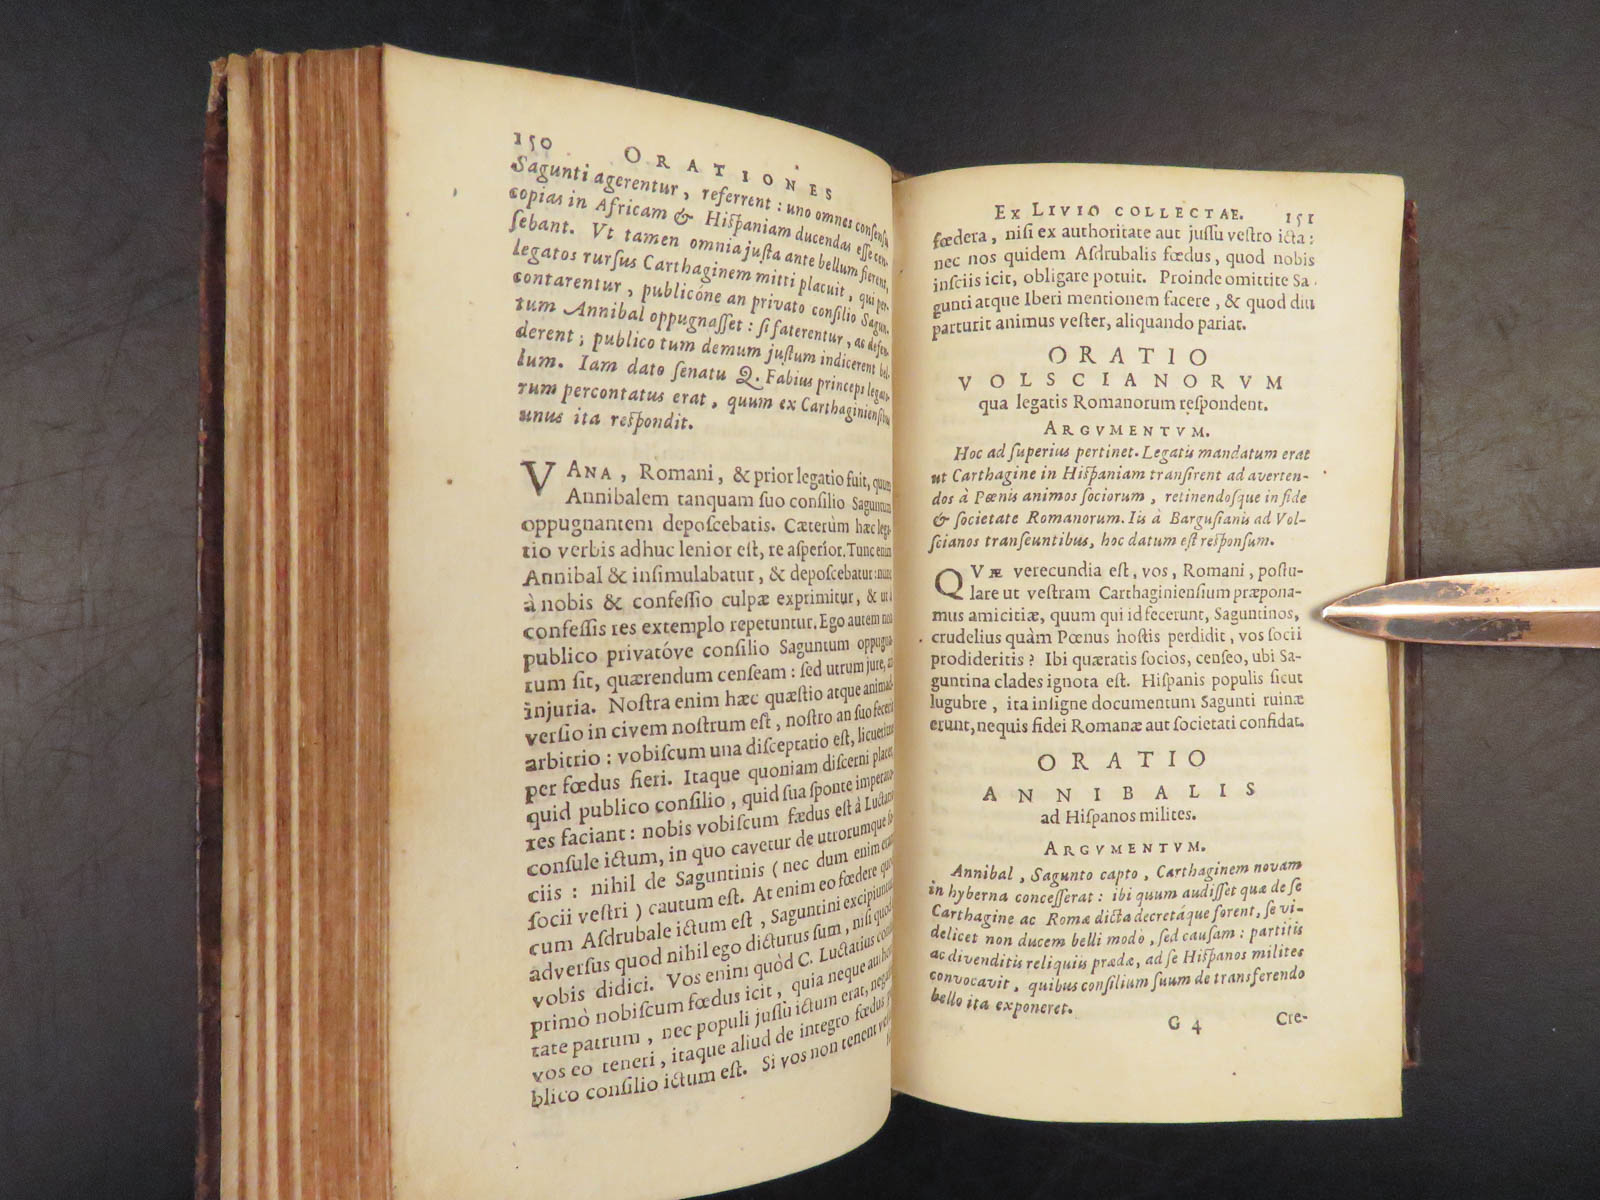 150 ORATIONES
Sagunti agerentur, referrent: uno omnes consensu
copias in Africam & Hispaniam ducendas esse cen-
sebant. Vt tamen omnia justa ante bellum fierent,
legatos rursus Carthaginem mitti placuit, qui per-
contarentur, publicóne an privato consilio Sagun-
tum Annibal oppugnasset: si faterentur, ac defen-
derent; publico tum demum justum indicerent bel-
lum. Iam dato senatu Q. Fabius princeps legato-
rum percontatus erat, quum ex Carthaginiensibus
unus ita respondit.
VANA, Romani, & prior legatio fuit, quum
Annibalem tanquam suo consilio Saguntum
oppugnantem deposcebatis. Cæterùm hæc lega-
tio verbis adhuc lenior est, re asperior. Tunc enim
Annibal & insimulabatur, & deposcebatur: nunc
à nobis & confessio culpæ exprimitur, & ut à
confessis res extemplo repetuntur. Ego autem non
publico privatóve consilio Saguntum oppugna-
tum sit, quærendum censeam: sed utrum jure, an
injuria. Nostra enim hæc quæstio atque animad-
versio in civem nostrum est, nostro an suo fecerit
arbitrio: vobiscum una disceptatio est, licueritne
per fœdus fieri. Itaque quoniam discerni placet,
quid publico consilio, quid sua sponte imperato-
res faciant: nobis vobiscum fœdus est à Luctatio
consule ictum, in quo cavetur de utrorumque so-
ciis: nihil de Saguntinis (nec dum enim erant
socii vestri) cautum est. At enim eo fœdere quod
cum Asdrubale ictum est, Saguntini excipiuntur
adversus quod nihil ego dicturus sum, nisi quod
vobis didici. Vos enim quòd C. Luctatius consul
primò nobiscum fœdus icit, quia neque
tate patrum, nec populi jussu ictum erat, negastis
vos eo teneri, itaque aliud de integro fœdus
blico consilio ictum est. Si vos non tenent
EX LIVIO COLLECTAE. 151
fœdera, nisi ex authoritate aut jussu vestro icta:
nec nos quidem Asdrubalis fœdus, quod nobis
insciis icit, obligare potuit. Proinde omittite Sa-
gunti atque Iberi mentionem facere, & quod diu
parturit animus vester, aliquando pariat.
ORATIO
VOLSCIANORVM
qua legatis Romanorum respondent.
ARGVMENTVM.
Hoc ad superius pertinet. Legatis mandatum erat
ut Carthagine in Hispaniam transirent ad averten-
dos à Pœnis animos sociorum, retinendosque in fide
& societate Romanorum. Iis à Bargusianis ad Vol-
scianos transeuntibus, hoc datum est responsum.
QVÆ verecundia est, vos, Romani, postu-
lare ut vestram Carthaginiensium præpona-
mus amicitiæ, quum qui id fecerunt, Saguntinos,
crudelius quàm Pœnus hostis perdidit, vos socii
prodideritis? Ibi quæratis socios, censeo, ubi Sa-
guntina clades ignota est. Hispanis populis sicut
lugubre, ita insigne documentum Sagunti ruinæ
erunt, nequis fidei Romanæ aut societati confidat.
ORATIO
ANNIBALIS
ad Hispanos milites.
ARGVMENTVM.
Annibal, Sagunto capto, Carthaginem novam
in hyberna concesserat: ibi quum audisset quæ de se
Carthagine ac Romæ dicta decretáque forent, se vi-
delicet non ducem belli modò, sed causam: partitis
ac divenditis reliquiis prædæ, ad se Hispanos milites
convocavit, quibus consilium suum de transferendo
bello ita exponeret.
G 4 Cre-